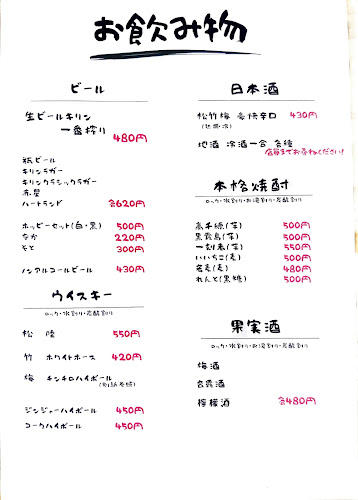 お飲み物
ビール
生ビールキリン
一番搾り
480円
瓶ビール
キリンラガー
キリンクラシックラガー
赤星
ハートランド 各620円
ホッピーセット(白・黒) 500円
なか 220円
そと 300円
ノンアルコールビール 430円
ウイスキー
ロック・水割り・炭酸割り
松 陸 550円
竹 ホワイトホース 420円
梅 チンチロハイボール
ジンジャーハイボール 450円
コークハイボール 450円
日本酒
松竹梅 豪快辛口 430円
地酒 冷酒一合 各種
店員までお尋ねください!
本格焼酎
ロック・水割り・お湯割り・炭酸割り
高千穂(芋) 500円
黒霧島(芋) 500円
一刻者(芋) 550円
いいちこ(麦) 500円
(麦) 480円
れんと(黒糖) 500円
果実酒
ロック・水割り・お湯割り・炭酸割り
梅酒
杏露酒
檸檬酒 各480円